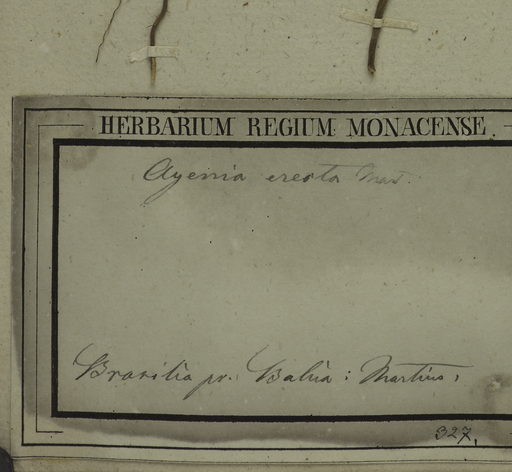 HERBARIUM REGIUM MONACENSE.
Ayenia erecta Mart.
Brasilia pr. Bahia: Martius.
327.